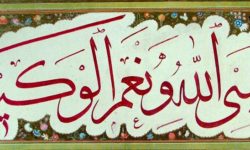 الله ونعم الوكيل